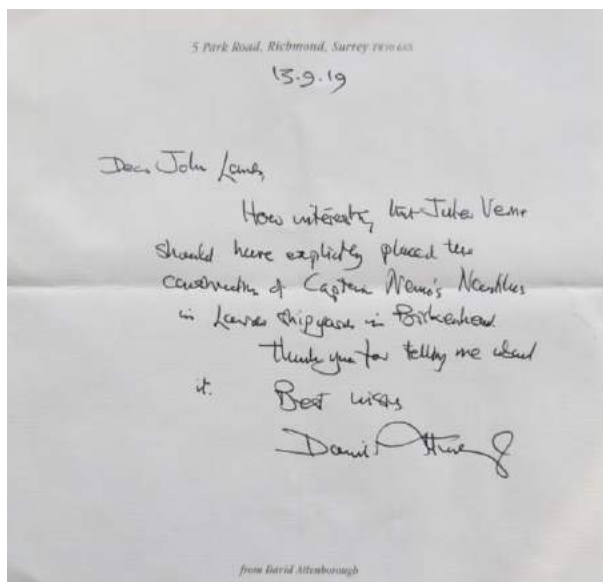 5 Park Road, Richmond, Surrey TW10 6NS
13.9.19
Dear John Lamb,
How interesting that Jules Verne
should have explicitly placed the
construction of Captain Nemo's Nautilus
in shipyard in Birkenhead.
Thank you for telling me about
it. Best wishes
David Attenborough
from David Attenborough